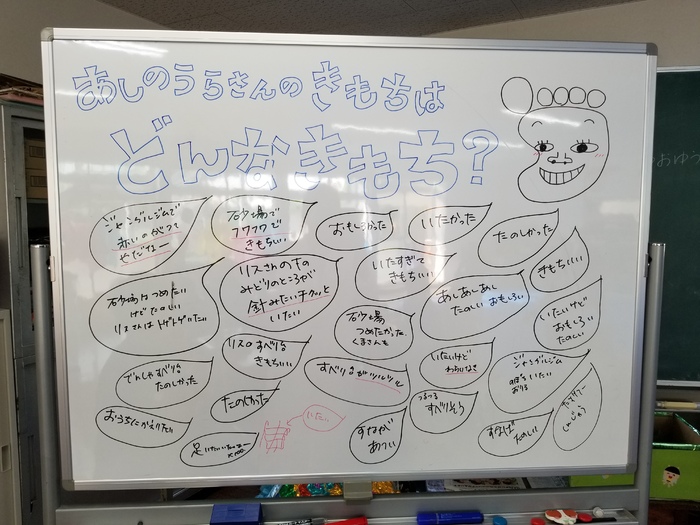 あしのうらさんのきもちは
どんなきもち?
ジャングルジムで
赤いのがついて
やだなー
砂場で
フワフワで
きもちいい
おもしろかった
いたかった
たのしかった
きもちいい
砂場はつめたい
けどたのしい
リスさんはトゲトゲいたい
リスさんの下の
みどりのところが
針みたいチクッと
いたい
いたすぎて
きもちいい
あしあしあし
たのしい おもしろい
いたいけど
おもしろい
たのしい
砂場
つめたかった
くまさんも
リスのすべり台
きもちいい
すべり台がツルツル
いたいけど
ジャングルジム
いたい
おりる
でんしゃすべり台
たのしかった
たのしかった
つるつる
すべりそう
おうちにかえりたい
いたい
すなが
あつい
たのしい